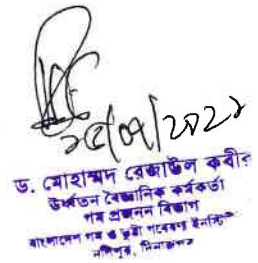 ২৫/০৭/২০২১
ড. মোহাম্মদ রেজাউল কবীর
উর্ধ্বতন বৈজ্ঞানিক কর্মকর্তা
গম প্রজনন বিভাগ
বাংলাদেশ গম ও ভুট্টা গবেষণা ইনস্টি
নশিপুর, দিনাজপুর